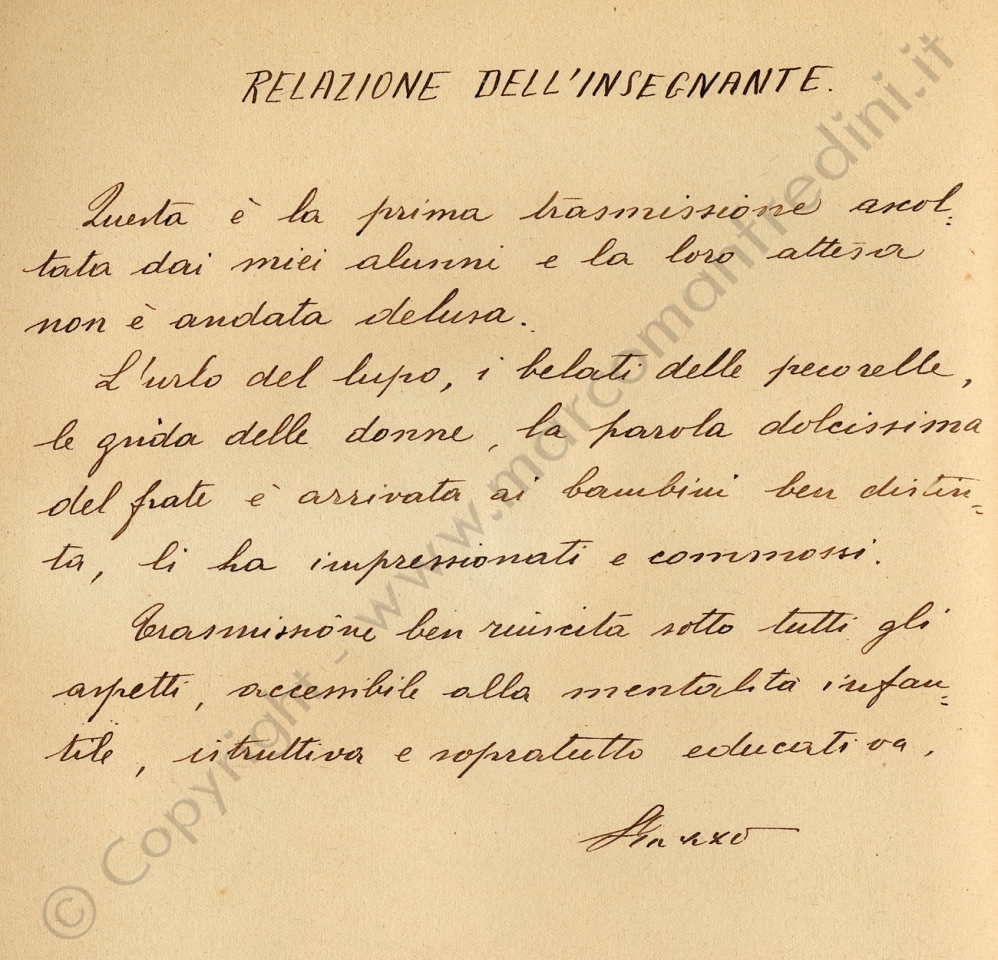 RELAZIONE DELL'INSEGNANTE.
Questa è la prima trasmissione ascol=
tata dai miei alunni e la loro attesa
non è andata delusa.
L'urlo del lupo, i belati delle pecorelle,
le grida delle donne, la parola dolcissima
del frate è arrivata ai bambini ben distin=
ta, li ha impressionati e commossi.
Trasmissione ben riuscita sotto tutti gli
aspetti, accessibile alla mentalità infan=
tile, istruttiva e sopratutto educativa.
© Copyright - www.marcomanfredini.it